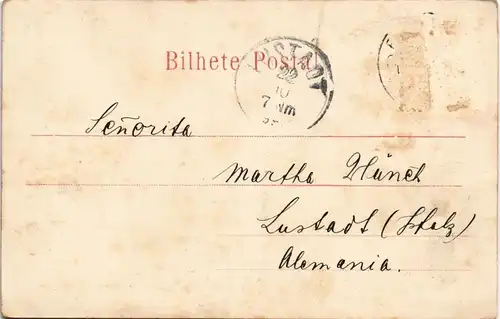 Bilhete Postal
USTADT
22
10
7 Nm
Señorita
Martha Münch
Lustadt (Pfalz)
Alemania.